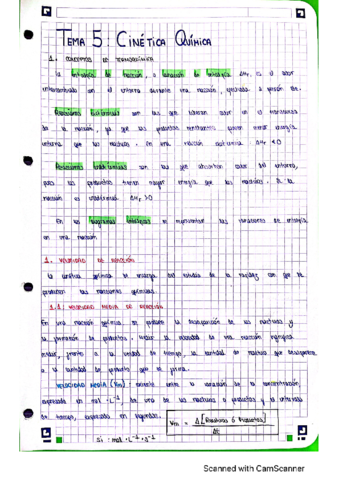 TEMA 5: CINÉTICA QUÍMICA
1. CONCEPTOS DE TERMOQUÍMICA
La entalpía de reacción, o variación de entalpía ΔHr, es el calor
intercambiado con el entorno durante una reacción, efectuada a presión cte.
Reacciones exotérmicas son las que liberan calor en el transcurso
de la reacción, ya que los productos resultantes tienen menor energía
interna que los reactivos. En una reacción exotérmica ΔHr < 0
Reacciones endotérmicas son las que absorben calor del entorno,
pues los productos tienen mayor energía que los reactivos. Si la
reacción es endotérmica ΔHr > 0
En los diagramas entálpicos se representan las variaciones de entalpía
en una reacción
1. VELOCIDAD DE REACCIÓN
La cinética química se encarga del estudio de la rapidez con que se
producen las reacciones químicas.
1.1. VELOCIDAD MEDIA DE REACCIÓN
En una reacción química se produce la desaparición de los reactivos y
la formación de productos. la velocidad de una reacción
medir, frente a la unidad de tiempo, la cantidad de reactivo que desaparece
o la cantidad de producto que se forma.
VELOCIDAD MEDIA (Vm): cociente entre la variación de la concentración,
expresada en mol · L⁻¹, de uno de los reactivos o productos y el intervalo
de tiempo, expresado en segundos.
Vm = Δ[Reactivos ó Productos] / Δt
SI: mol · L⁻¹ · s⁻¹
Scanned with CamScanner